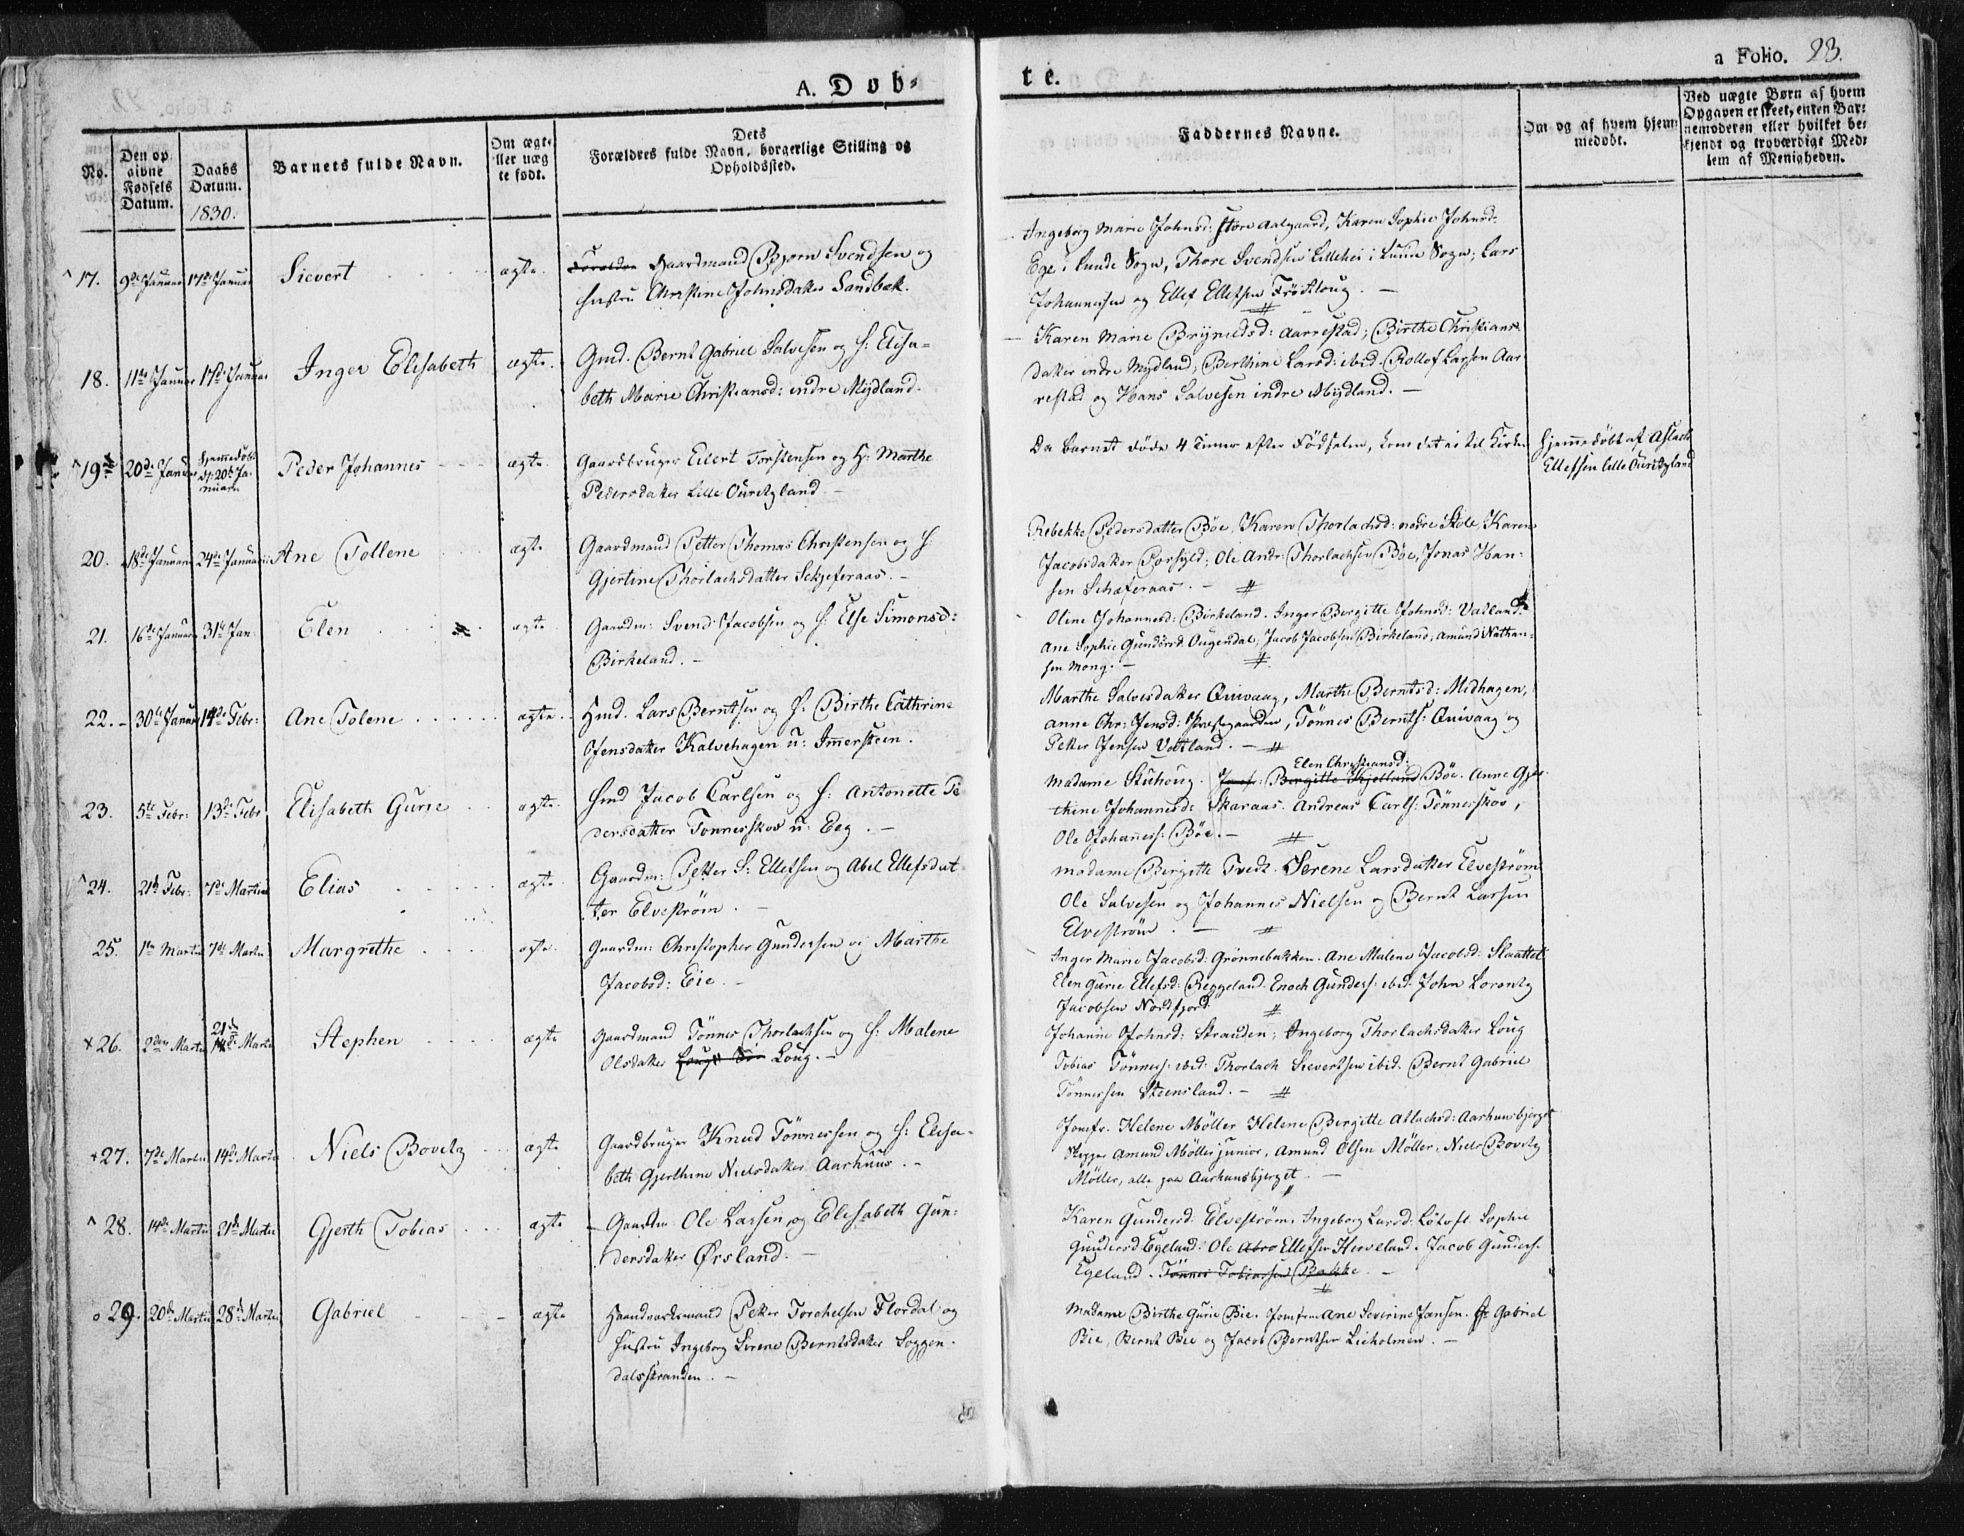 A. Døb-
te.
a Folio. 23.
No.
Den op
givne
Fødsels
Datum.
Daabs
Datum.
1830.
Barnets fulde Navn.
Om ægte
ller uæg
te født.
Dets
Forældres fulde Navn, borgerlige Stilling og
Opholdssted.
Faddernes Navne.
Om og af hvem hjem-
medøbt.
Ved uægte Børn af hvem
Opgaven er skeet, enten Bar-
nemoderen eller hvilket be-
kjendt og troværdigt Med-
lem af Menigheden.
17. 9de Januar 17de Januar Sievert ægte. Gaardmand Bjørn Svendsen og
Hustru Christine Johnsdatter Sandbek.
Ingeborg Marie Johnsd: store Aalgaard, Karen Sophie Johnsd-
Ege i Lunde Sogn, Thore Svendsen Lillehei i Lunde Sogn; Lars
Johannessen og Ellef Ellefsen Frøitloug. -
18. 11te Januar 17de Januar Inger Elisabeth ægte. Gmd. Bernt Gabriel Salvesen og H: Elisa-
beth Marie Christiansd: indre Mydland.
Karen Marie Brynildsd: Aarrestad; Birthe Christians-
datter indre Mydland, Berthine Larsd: ibid. Rollof Larsen Aar-
restad og Hans Salvesen indre Mydland. -
19. 20de Januar Hjemmedøbt
d: 20de Ja-
nuarii Peder Johannes ægte. Gaardbruger Eilert Torstensen og H: Marthe
Pedersdatter Lille Ouretzland -
Da Barnet døde 4 Timer efter Fødselen, kom det ei til Kirken
Hjemmedøbt af Aslach
Ellefsen lille Ouretzland
20. 18de Januar 24de Januarii Ane Tollene ægte Gaardmand Petter Thomas Christensen og H
Gjertine Thorlachsdatter Sckjeferaas. -
Rebekke Pedersdatter Bøe, Karen Thorlachsd: nedre Skole, Karen
Jacobsdatter; Ole Andr: Thorlachsen Bøe, Jonas Han-
sen Schæferaas. -
21. 16de Januar 31te Jan: Elen ægte Gaardm: Svend Jacobsen og H: Else Simonsd:
Birkeland. -
Oline Johannesd: Birkeland. Inger Bergitte Johnsd: Vatland
Ane Sophie Gundersd: Ougendal, Jacob Jacobsen Birkeland, Amund Nathan-
sen Mong. -
22. 30te Januar 14de Febr: Ane Tolene ægte. Hmd. Lars Berntsen og H: Birthe Cathrine
Jensdatter Kalvehagen u: Immersteen.
Marthe Salvesdatter Qvivaag, Marthe Berntsd: Midhagen,
Anne Chr: Jensd: Præstegaarden, Tønnes Bernts: Qvivaag og
Petter Jensen Vatland. -
23. 5te Febr: 13de Febr Elisabeth Gurie ægte Hmd Jacob Carlsen og H: Antonette Pe
dersdatter Tonnesskov u: Eeg. -
Elen Christiansd:
Madame Stuhoug. Jomf: Bergitte Kjelland Bøe. Anne Gjer-
thine Johannesd: Skaraas. Andreas Carls: Tønnesskov,
Ole Johanness: Bøe. -
24. 21de Febr: 7de Martii Elias ægte Gaardm: Petter S: Ellefsen og Abel Ellefsdat
ter Elvestrøm. -
Madame Birgitte Tvedt. Serene Larsdatter Elvestrøm
Ole Salvesen og Johannes Nielsen og Bernt Larsen
Elvestrøm. -
25. 1te Martii 7de Martii Margrethe ægte. Gaardm: Christopher Gundersen og Marthe
Jacobsd: Eie. -
Inger Marie Jacobsd: Grønnebakken. Ane Malene Jacobsd: Slaattet
Elen Gurie Ellefsd: Reggeland. Enoch Gunders: ibid. John Lorentz
Jacobsen Nordfjord
26. 2den Martii 21de
14de Martii Stephen ægte Gaardmand Tönnes Thorlachsen og H: Malene
Olsdatter Loug. -
Johanne Johnsd: Stranden; Ingeborg Thorlachsdatter Loug
Tobias Tönness: ibid: Thorlach Sievertsen ibid. Bernt Gabriel
Tönnessen Steensland. -
27. 7de Martii 14de Martii Niels Bovitz ægte Gaardbruger Knud Tönnessen og H: Elisa-
beth Gjerthine Nielsdatter Aarhuus. -
Jomfr. Helene Möller Helene Bergitte Atlachsd: Aarhuusbjerget
Skipper Amund Möller junior, Amund Olsen Möller, Niels Bovitz
Möller, alle paa Aarhuusbjerget. -
28. 14de Martii 21de Martii Gjerth Tobias ægte - Gaardm Ole Larsen og Elisabeth Gun-
dersdatter Ørsland. -
Karen Gundersd. Elvestrøm, Ingeborg Larsd: Sophie
Gundersd Egeland. Ole Abro Ellefsen Herveland. Jacob Gunders.
Egeland. Tönnes Tobiassen Bakke. -
29. 20de Martii 28de Martii Gabriel ægte Haandværksmand Petter Torchelsen Flordal og
Hustru Ingeborg Serene Berntsdatter Soggen-
dalsstranden. -
Madame Birthe Gurie Bie. Jomfrue Ane Severine Jansen. Gabriel
Bie, Bernt Bie og Jacob Berntsen Lieholmen. -